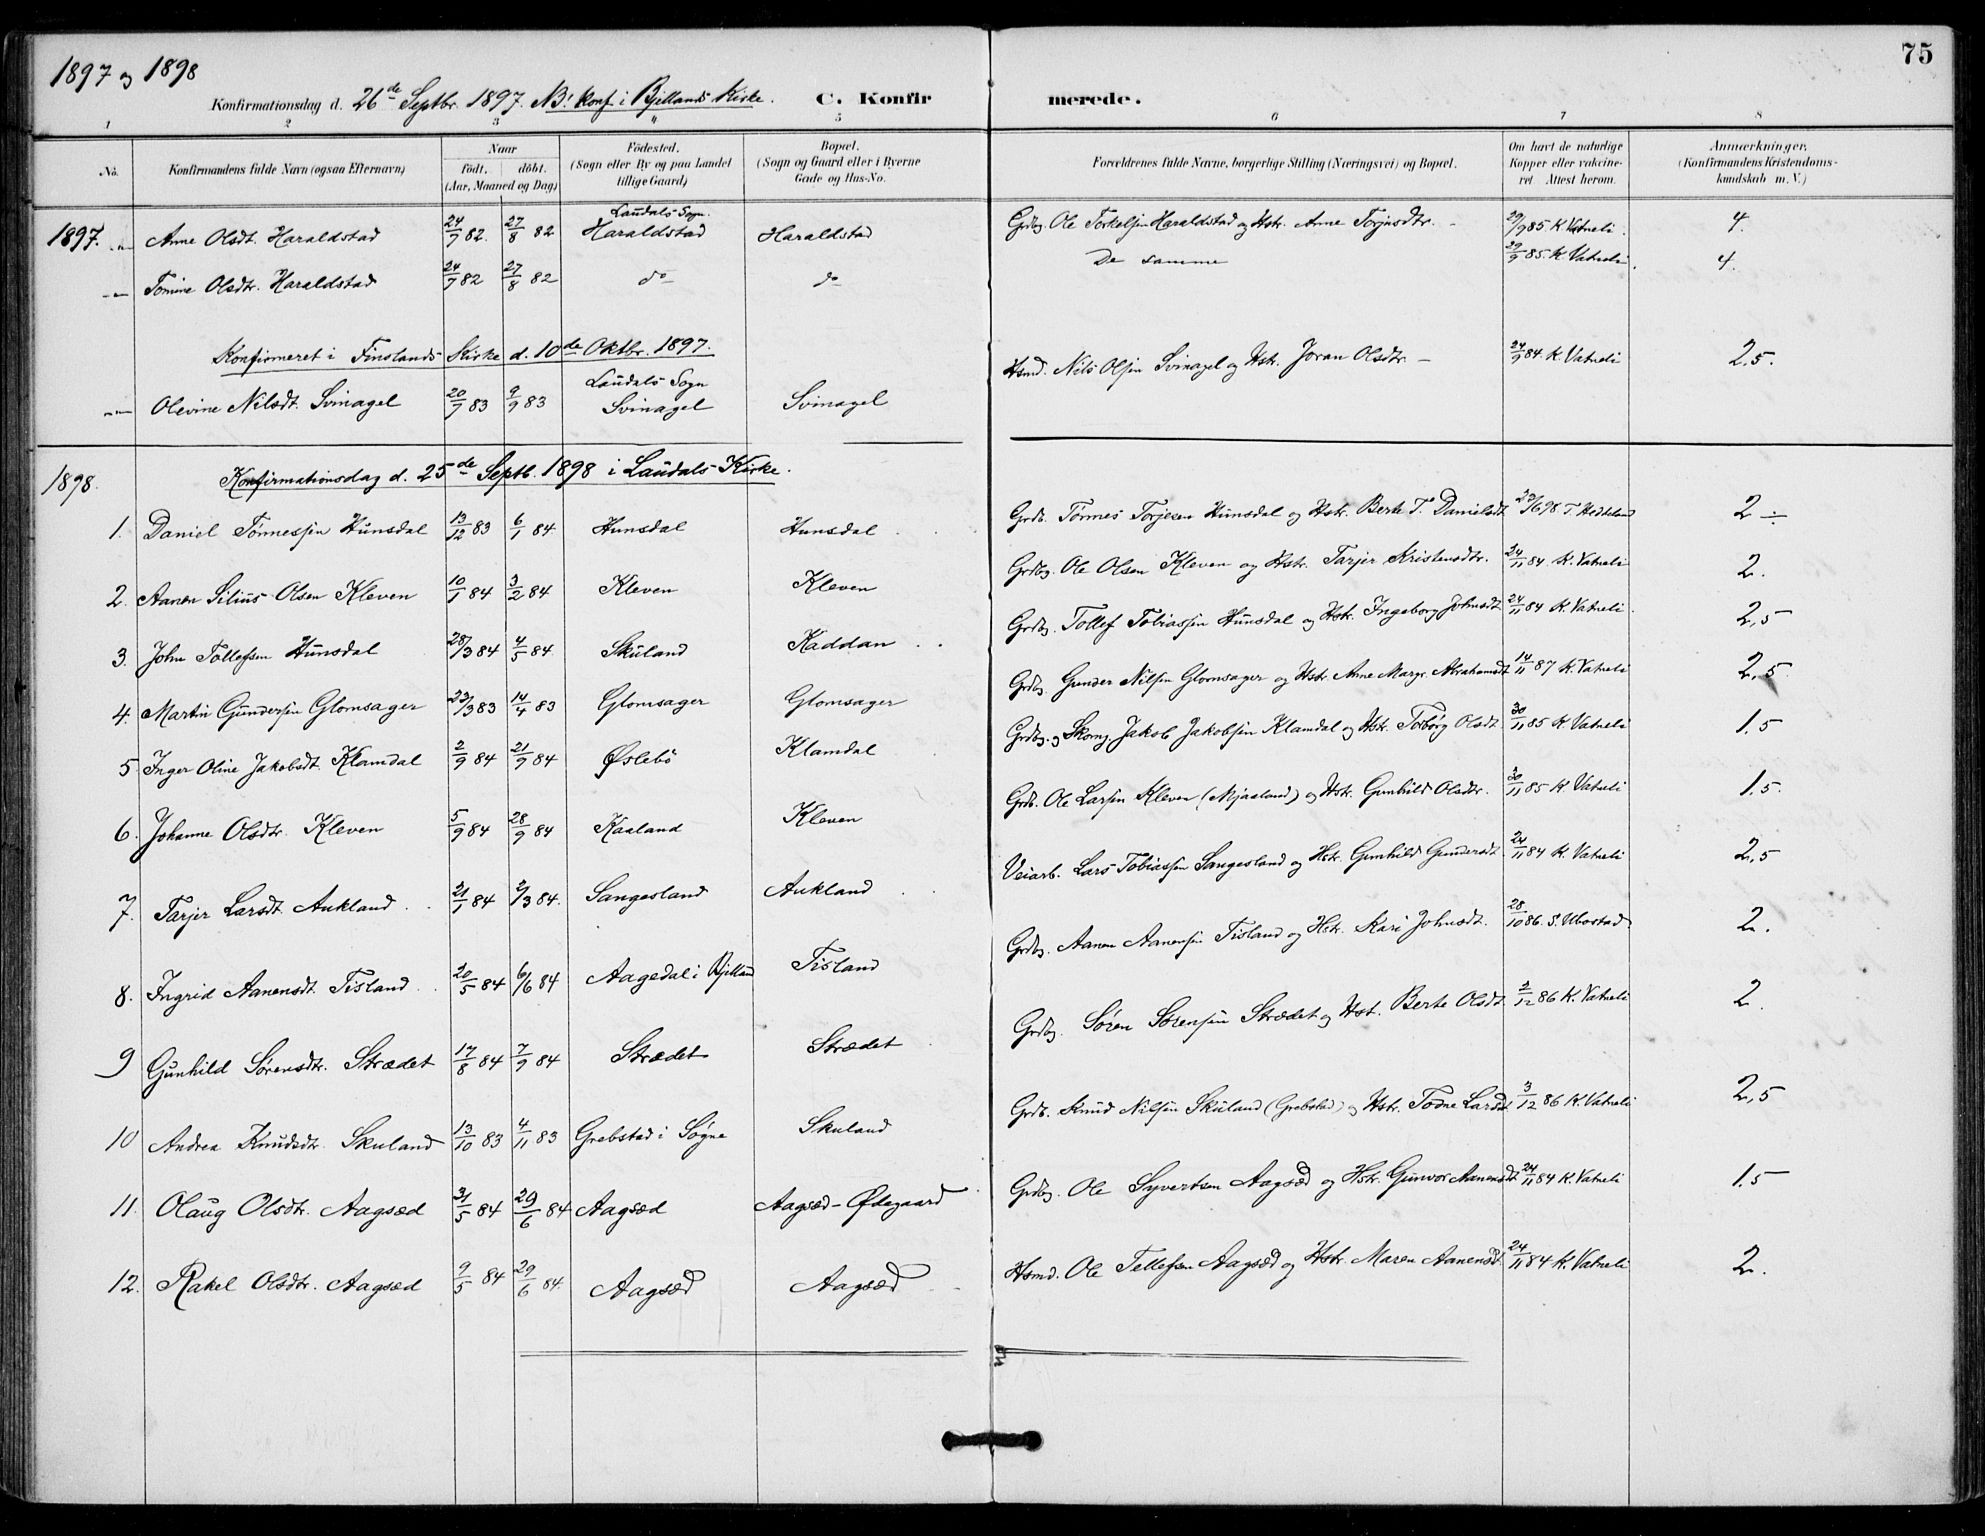 1897 og 1898
75
Konfirmationsdag d. 26de Septbr. 1897. NB! Konf. i Bjellands Kirke. C. Konfirmerede.
1 2 3 4 5 6 7 8
No. Konfirmandens fulde Navn (ogsaa Efternavn) Naar födt. döbt. (Aar, Maaned og Dag) Födested. (Sogn eller By og paa Landet tillige Gaard) Bopæl. (Sogn og Gaard eller i Byerne Gade og Hus-No. Forældrenes fulde Navne, borgerlige Stilling (Næringsvei) og Bopæl. Om havt de naturlige Kopper eller vakcineret. Attest herom. Anmærkninger. (Konfirmandens Kristendomskundskab m. V.)
1897. -"- Anne Olsdt. Haraldstad 24/7 82. 27/8 82 Laudals Sogn. Haraldstad Haraldstad Grdbg. Ole Torkelsen Haraldstad og Hstr. Anne Torjusdtr. - 29/9 85 K. Vatneli. 4.
-"- Tomine Olsdtr. Haraldstad 24/7 82 27/8 82 do do De samme 29/9 85. K. Vatneli. 4.
Konfirmeret i Finslands Kirke d. 10de Oktbr. 1897.
-"- Olevine Nilsdt. Svinagel 20/7 83 9/9 83 Laudals Sogn Svinagel Svinagel Hsmd. Nils Olsen Svinagel og Hstr. Joran Olsdtr. - 24/9 84. K. Vatneli 2,5.
1898. Konfirmationsdag d. 25de Septb. 1898 i Laudals Kirke.
1. Daniel Tønnessen Hunsdal 13/12 83 6/1 84. Hunsdal Hunsdal Grdb. Tønnes Torjesen Hunsdal og Hstr. Berte T. Danielsdt. 23/6 98 T. Hedteland 2 ÷
2. Aanen Silius Olsen Kleven 10/1 84 3/2 84 Kleven Kleven Grdbg. Ole Olsen Kleven og Hstr. Tarjer Kristensdtr. 24/11 84 K. Vatneli 2.
3. John Tollefsen Hunsdal 28/3 84 4/5 84 Skuland Kaddan Grdbg. Tollef Tobiassen Hunsdal og Hstr. Ingeborg Johnsdt. 24/11 84 K. Vatneli. 2,5
4. Martin Gundersen Glomsager 23/3 83 14/4 83 Glomsager Glomsager Grdbg. Gunder Nilsen Glomsager og Hstr. Anne Margr. Abrahamsdt. 14/11 87 K. Vatneli 2,5.
5 Inger Oline Jakobsdt. Klamdal 2/9 84 21/9 84 Øslebö Klamdal Grdbg. og Skomg. Jakob Jakobsen Klamdal og Hstr. Torborg Olsdt. 30/11 85 K. Vatneli 1,5
6. Johanne Olsdtr. Kleven 5/9 84 28/9 84 Kaaland Kleven Grdb. Ole Larsen Kleven (Mjaaland) og Hstr. Gunhild Olsdtr. 30/11 85 K. Vatneli 1,5.
7. Tarjer Larsdt. Aukland 21/1 84 2/3 84. Sangesland Aukland Veiarb. Lars Tobiassen Sangesland og Hstr. Gunhild Gundersdt. 24/11 84 K. Vatneli 2,5
8. Ingrid Aanensdt. Tisland 20/5 84 6/6 84 Aagedal i Bjelland Tisland Grdbg. Aanen Aanensen Tisland og Hstr. Kari Johnsdt. 28/10 86. S. Ubostad 2.
9 Gunhild Sørensdtr. Strædet 17/8 84 7/9 84 Strædet Strædet Grdbg. Søren Sørensen Strædet og Hst. Berte Olsdt. 2/12 86 K. Vatneli 2.
10 Andrea Knudsdtr. Skuland 13/10 83 4/11 83 Grebstad i Søgne Skuland Grdb. Knud Nilsen Skuland (Grebstad) og Hstr. Todne Larsdt. 3/12 86 K. Vatneli 2,5
11. Olaug Olsdtr. Aagsæd 31/5 84 29/6 84 Aagsæd Aagsæd-Ødegaard Grdbg. Ole Syvertsen Aagsæd og Hstr. Gunvor Aanensdt. 24/11 84 K. Vatneli 1,5
12. Rakel Olsdtr. Aagsæd 9/5 84 29/6 84. Aagsæd Aagsæd Hsmd. Ole Tellefsen Aagsæd og Hstr. Maren Aanensdt. 24/11 84 K. Vatneli 2.